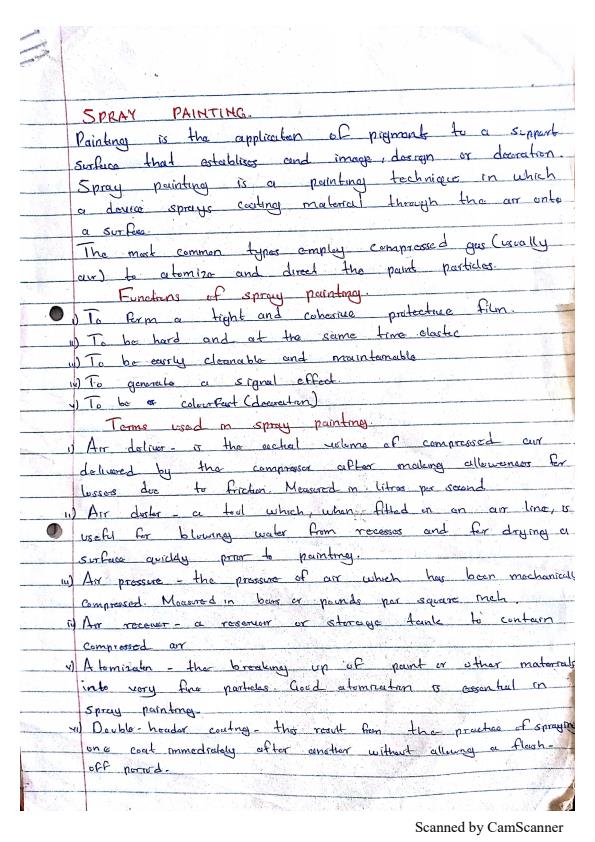 SPRAY PAINTING.
Painting is the application of pigments to a support
surface that establises and image, design or decoration.
Spray painting is a painting technique in which
a device sprays coating material through the air onto
a surface.
The most common types employ compressed gas (usually
air) to atomize and direct the paint particles.
Functions of spray painting.
i) To form a tight and cohesive protective film.
ii) To be hard and at the same time elastic
iii) To be easily cleanable and maintainable
iv) To generate a signal effect.
v) To be colourfast (decoration)
Terms used in spray painting.
i) Air deliver - is the actual volume of compressed air
delivered by the compressor after making allowances for
losses due to friction. Measured in litres per second
ii) Air duster - a tool which, when fitted in an air line, is
useful for blowing water from recesses and for drying a
surface quickly prior to painting.
iii) Air pressure - the pressure of air which has been mechanically
compressed. Measured in bars or pounds per square inch.
iv) Air receiver - a reservoir or storage tank to contain
compressed air
v) Atomization - the breaking up of paint or other materials
into very fine particles. Good atomization is essential in
spray painting.
vi) Double-header coating - this result from the practice of spraying
one coat immediately after another without allowing a flash-
off period.
Scanned by CamScanner